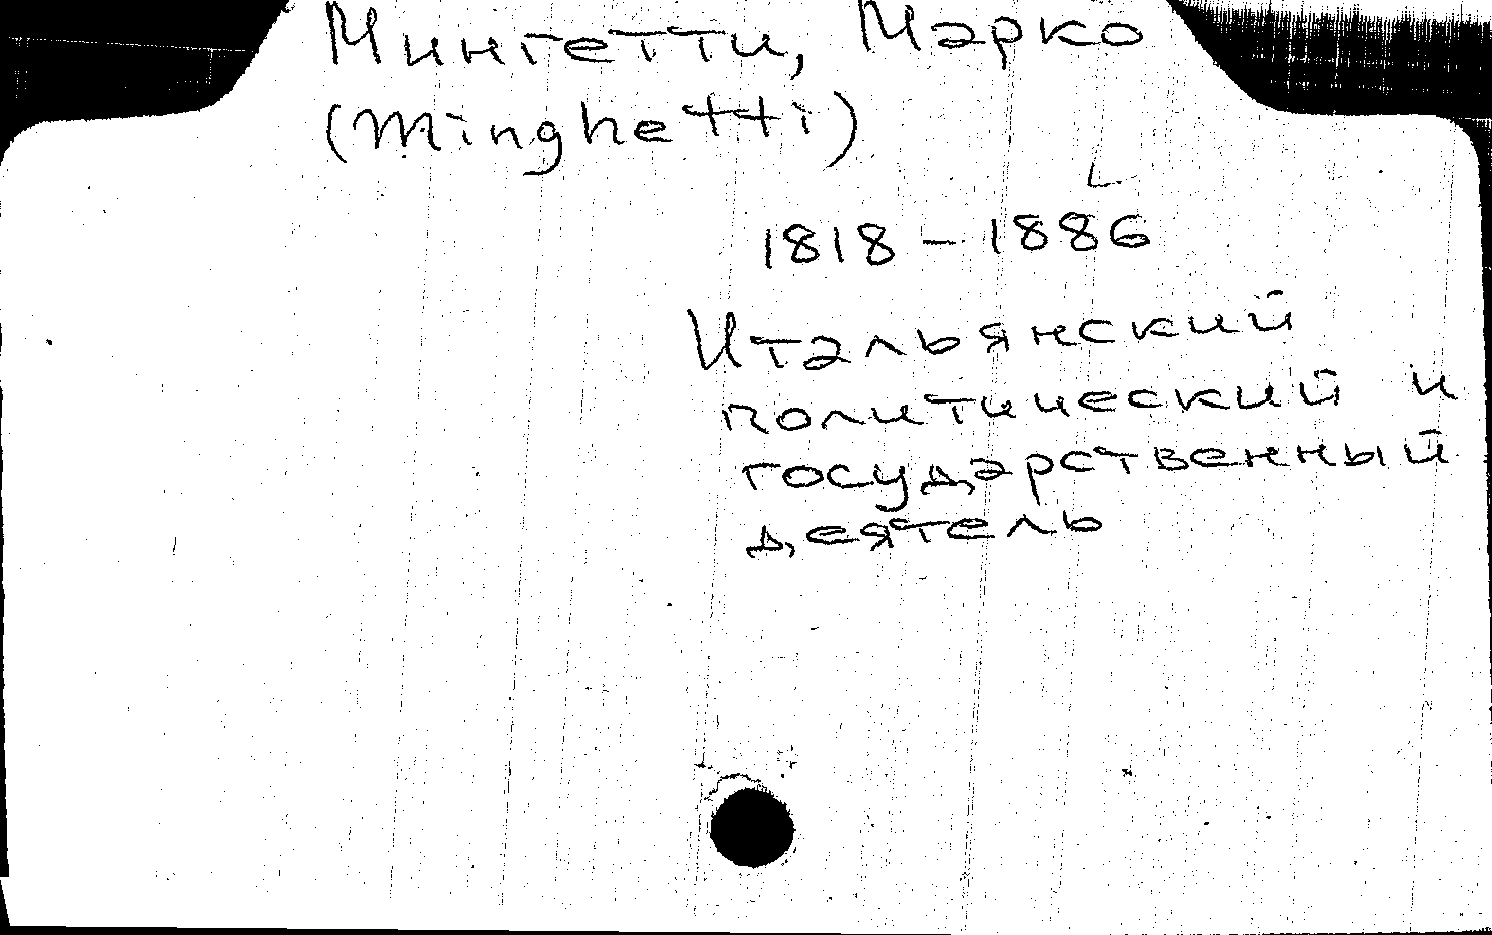 Мингетти, Марко
(Minghetti)
1818 – 1886
Итальянский
политический и
государственный
деятель